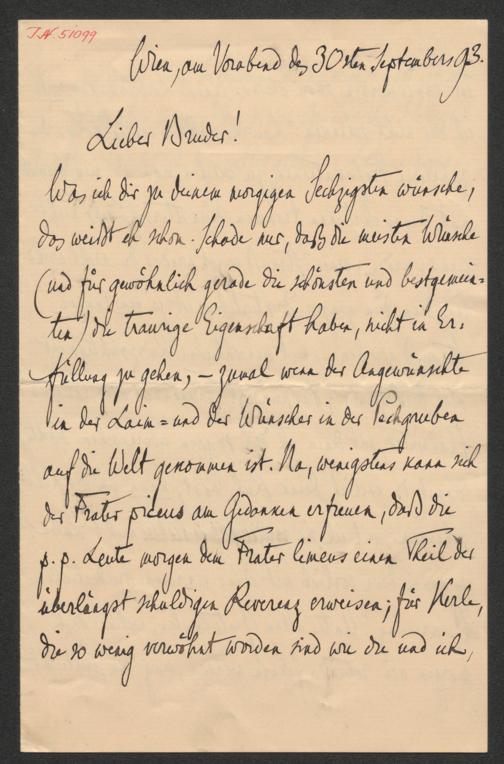 J.N. 51099
Wien, am Vorabend des 30sten Septembers 93.
Lieber Bruder!
Was ich dir zu deinem morgigen Sechzigsten wünsche,
das weißt eh schon. Schade nur, daß die meisten Wünsche
(und für gewöhnlich gerade die schönsten und bestgemein=
ten) die traurige Eigenschaft haben, nicht in Er=
füllung zu gehen, – zumal wenn der Angewünschte
in der Laim= und der Wünscher in der Pechgruben
auf die Welt gekommen ist. Na, wenigstens kann sich
der Frater piceus am Gedanken erfreuen, daß die
p. p. Leute morgen dem Frater limeus einen Theil der
überlängst schuldigen Reverenz erweisen; für Kerle,
die so wenig verwöhnt worden sind wie du und ich,